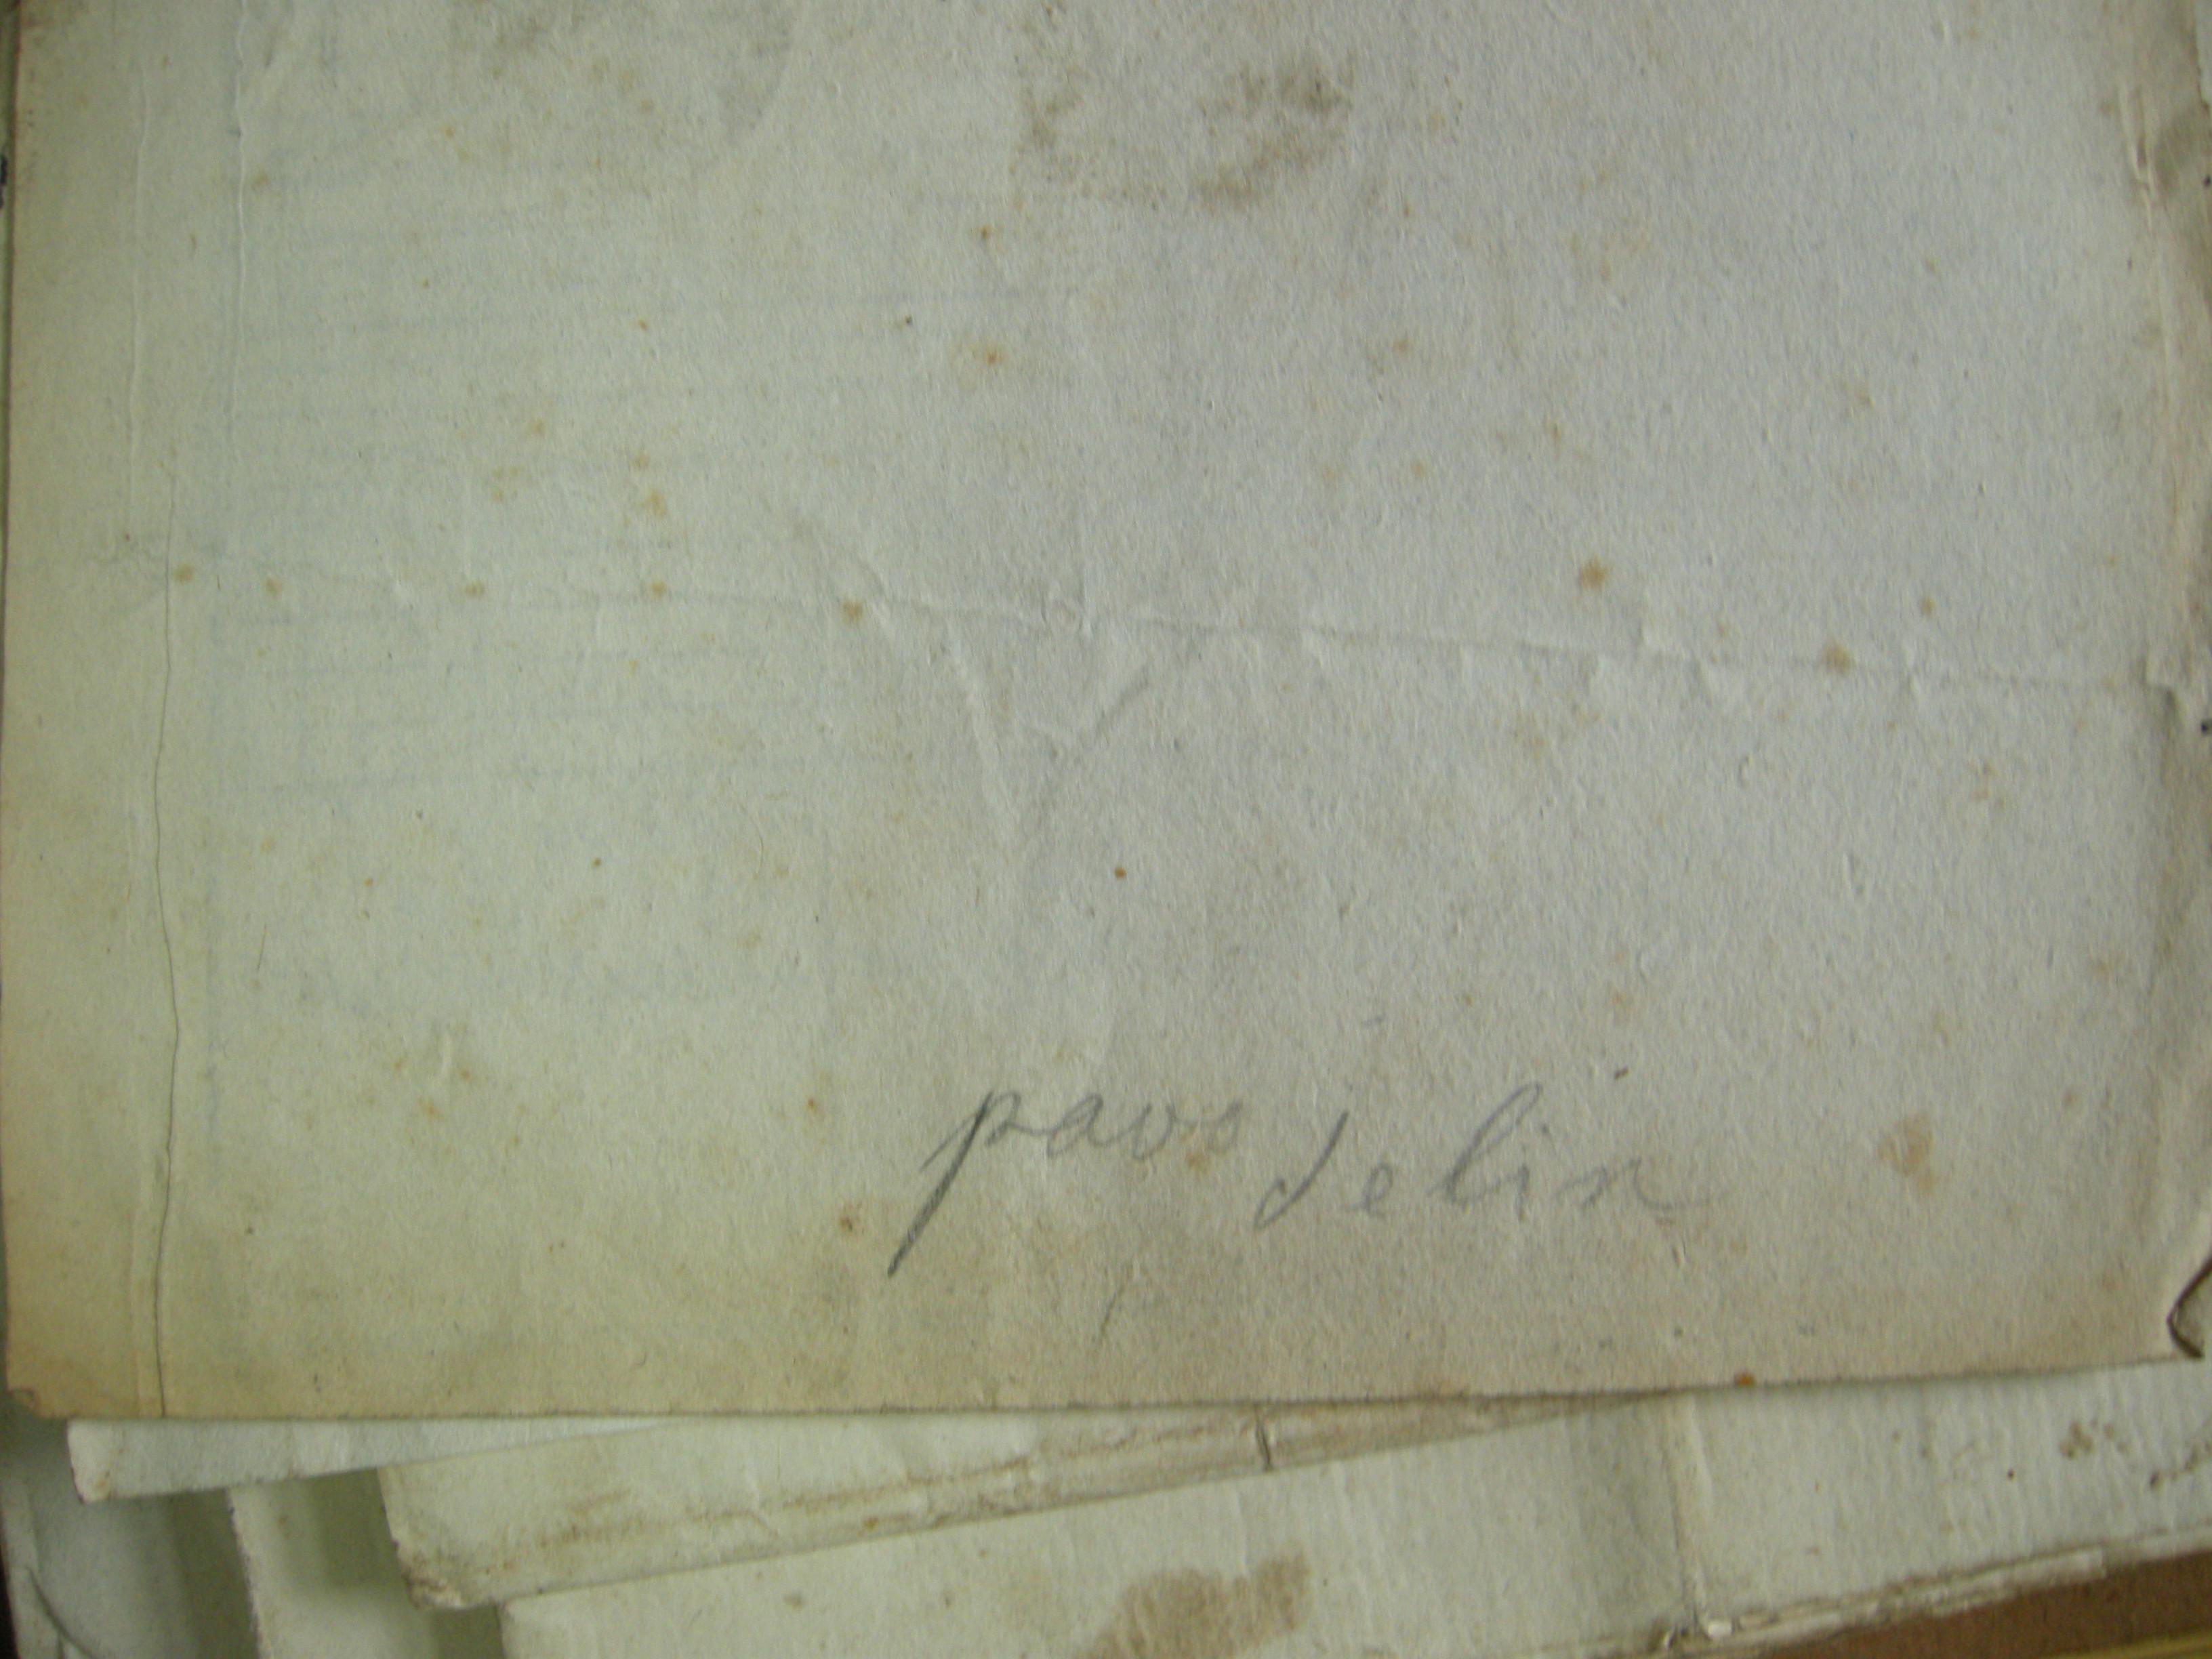 pavo delin